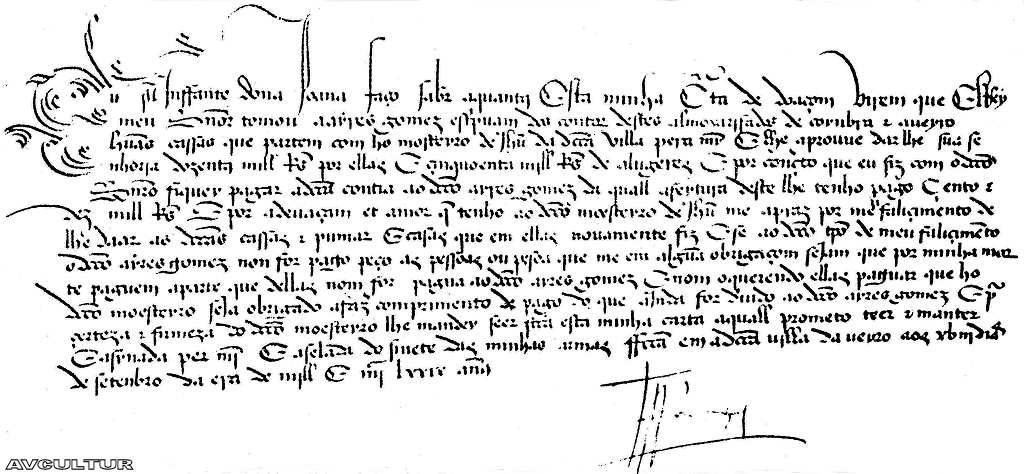 Eu Iffante dona Joana faço saber a quantos Esta minha Cta de doaçom virem que ElRey
meu Snor tomou a ayres gomez espriuam dos contos destes almoxarifados de coinbra e aueyro
huãs cassas que partem com ho mosteyro de Jhũ da dcta villa pera mym E lhe aprouve dar lhe sua se
nhoria dozentos mill Rs por ellas E cinquoenta mill Rs de alugeres E por concerto que eu fiz com o dcto
Snor fiquey pagar a dcta contia ao dcto ayres gomez da quall a feytura deste lhe tenho pago Cento e
dez mill Rs E por a deuaçam et amor q tenho ao dcto moesteyro de Jhũ me apraz por meu faliçimento de
lhe daar as dctas cassas e pumar E casas que em ellas nouamente fiz E se ao dcto tpo de meu faliçimẽto
o dcto ayres gomez non for pago peço as pessoas ou pesoa que me em algũa obrigaçom sejam que por minha mor
te paguem a parte que dellas nom for pagua ao dcto ayres gomez E nom o querendo ellas paguar que ho
dcto moesteyro seja obrigado a faz comprimento de pago do que ainda for diuido ao dcto ayres gomez E pa
certeza e firmeza do dcto moesteyro lhe mandey seer fcta esta minha carta a quall prometo teer e manter
E asynada per mỹ E aselada do sinete das minhas armas ffcta em a dcta villa daueiro aos dias
de setenbro da era de mill E iiij lxxix anos
AVCULTUR